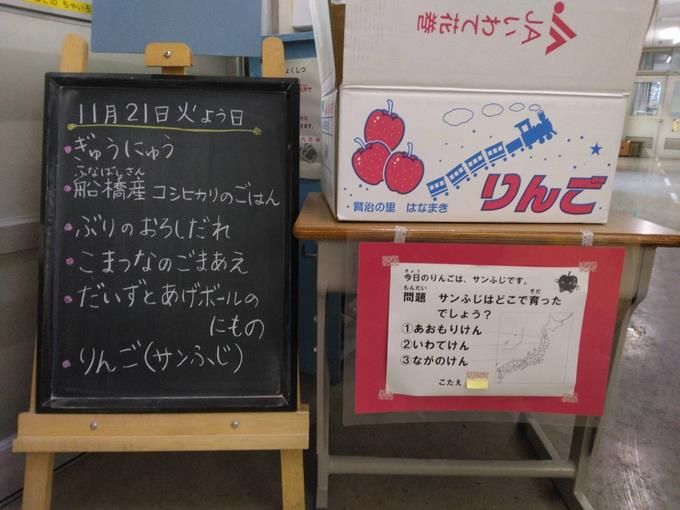 11月21日火よう日
ぎゅうにゅう
ふなばしさん
船橋産 コシヒカリのごはん
ぶりのおろしだれ
こまつなのごまあえ
だいずとあげボールの
にもの
りんご(サンふじ)
JAいわて花巻
りんご
賢治の里 はなまき
きょう
今日のりんごは、サンふじです。
もんだい そだ
問題 サンふじはどこで育った
でしょう?
①あおもりけん
②いわてけん
③ながのけん
こたえ